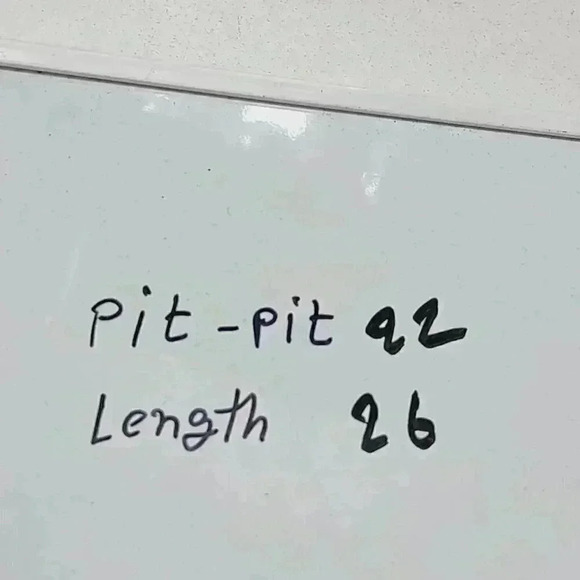 Pit-pit 22
Length 26